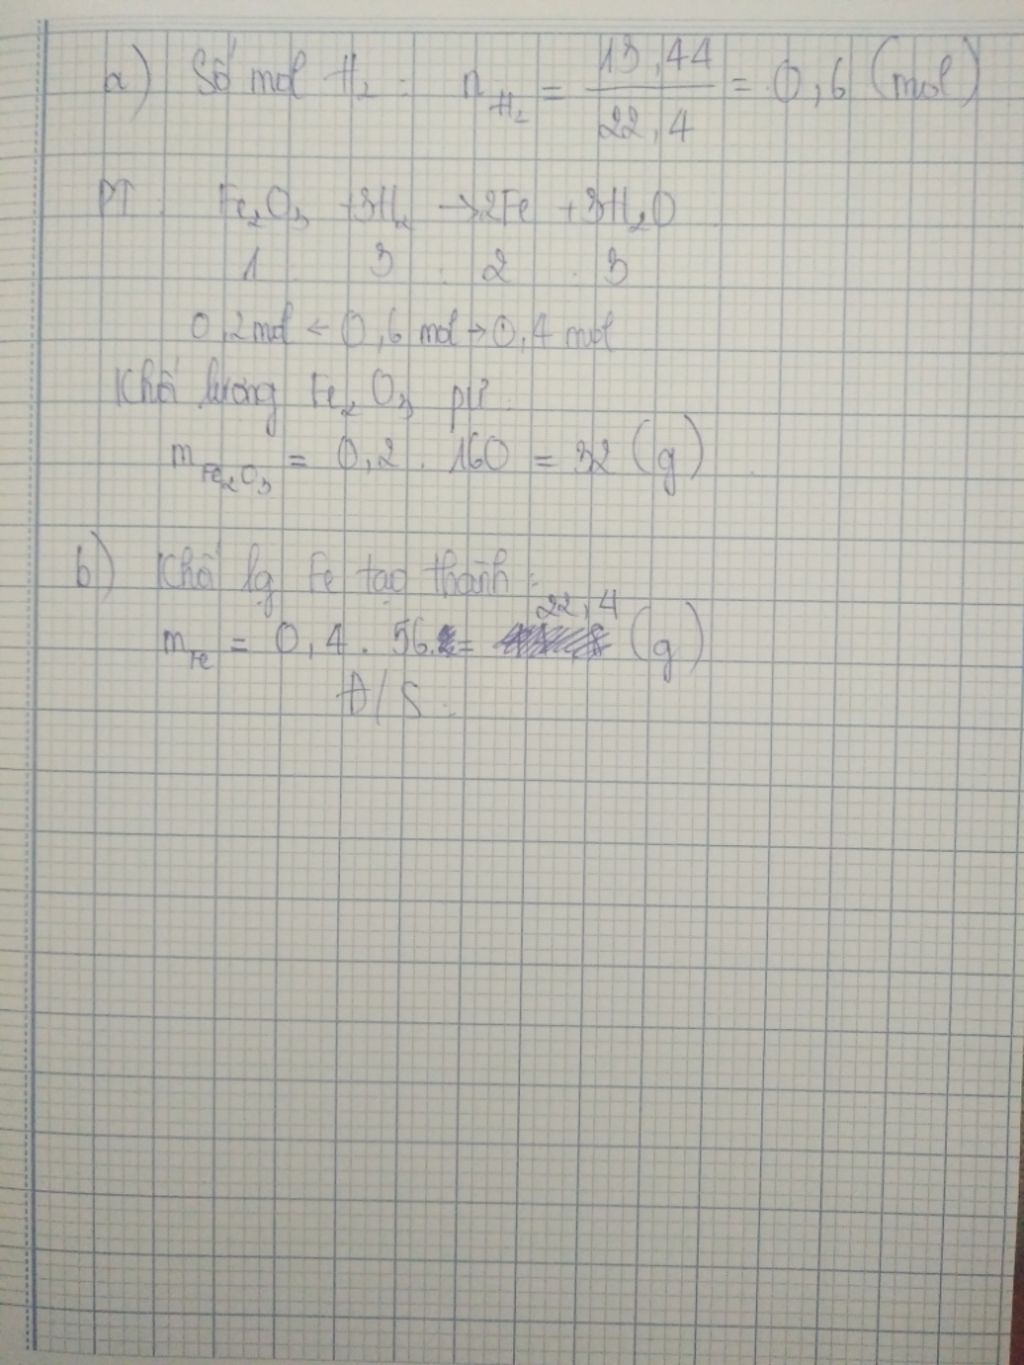 a) Số mol H₂ : n H₂ = 13,44 / 22,4 = 0,6 (mol)
PT Fe₂O₃ + 3H₂ → 2Fe + 3H₂O
1 3 2 3
0,2 mol ← 0,6 mol → 0,4 mol
Khối lượng Fe₂O₃ pư
m Fe₂O₃ = 0,2 . 160 = 32 (g)
b) Khối lg Fe tạo thành :
m Fe = 0,4 . 56 = 22,4 (g)
Đ/S